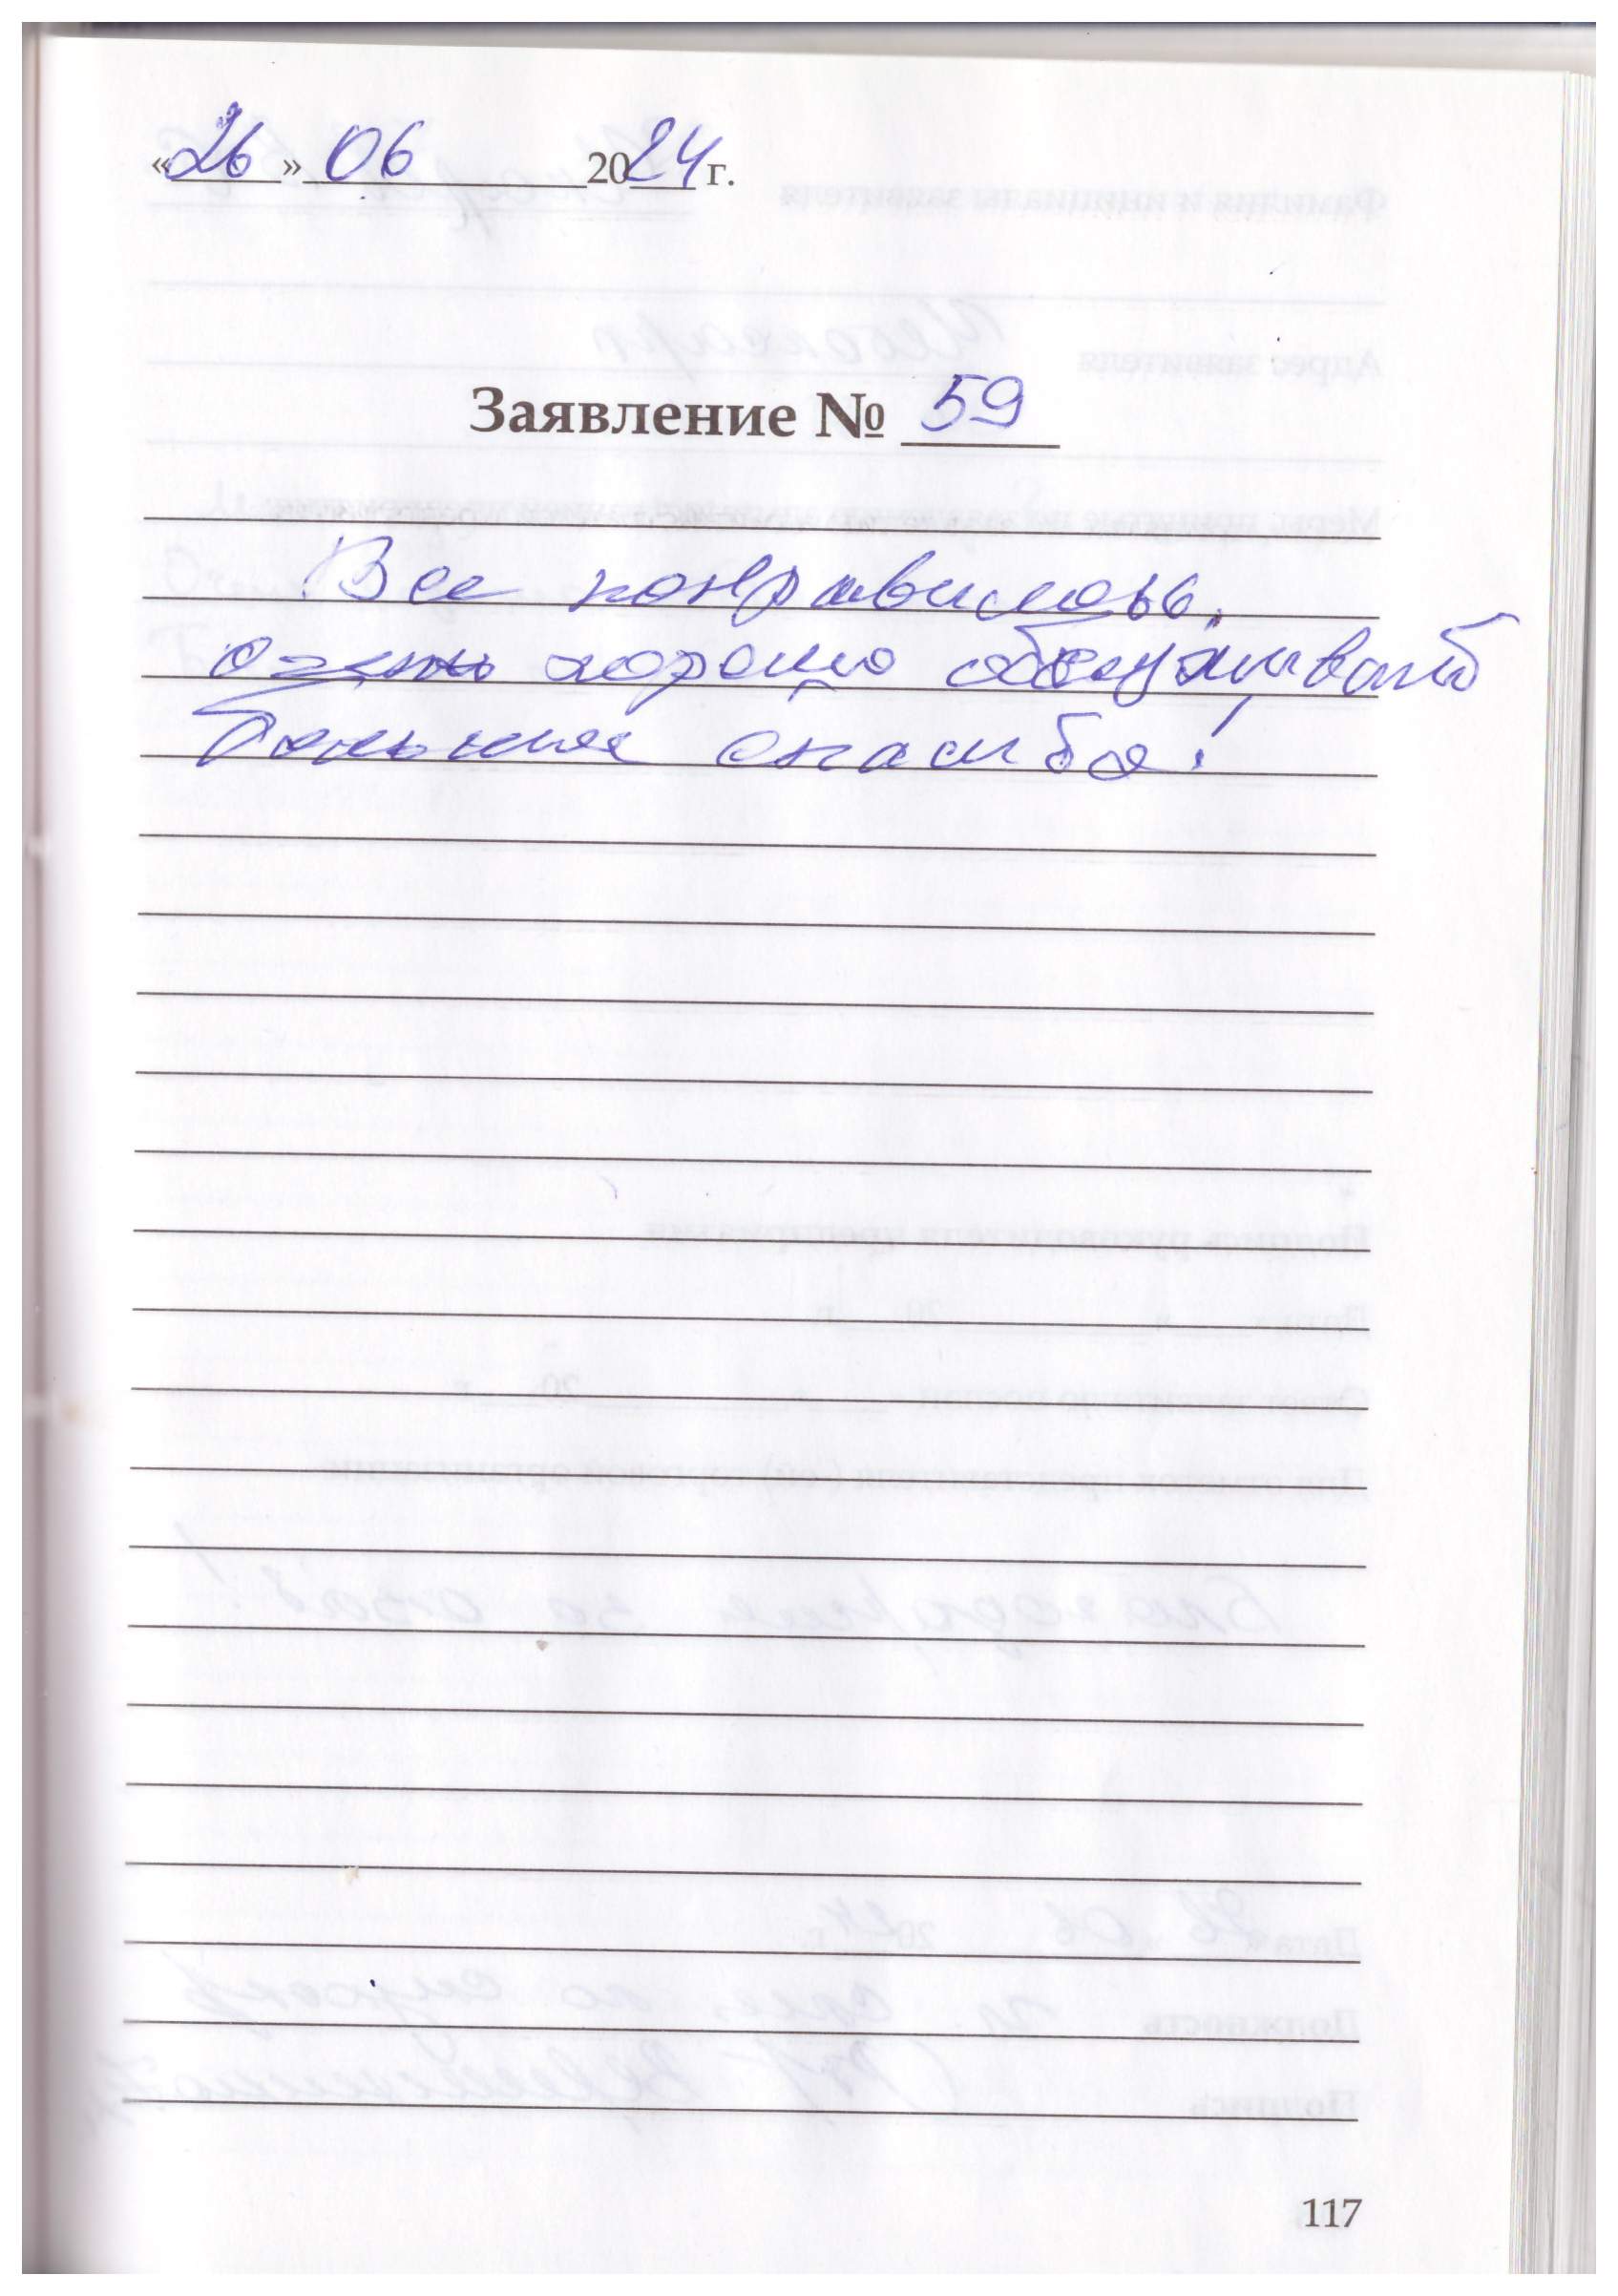 «26» 06 2024 г.
Заявление № 59
Все понравилось,
очень хорошо обслуживают
Большое спасибо!
117